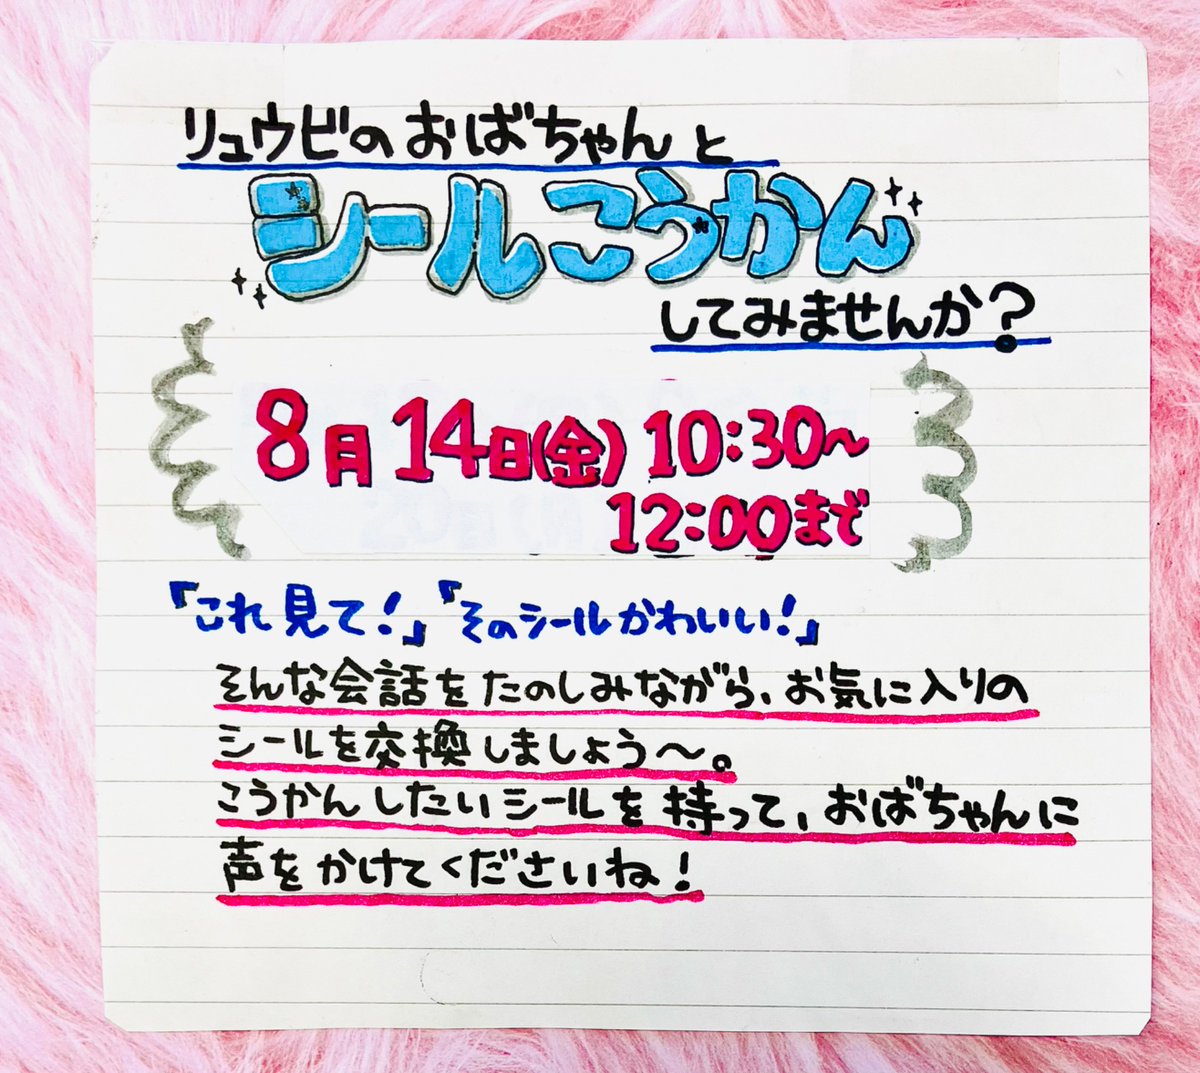 リュウビのおばちゃんと
シールこうかん
してみませんか?
8月14日(金)10:30〜
12:00まで
『これ見て!』『そのシールかわいい!』
そんな会話をたのしみながら、お気に入りの
シールを交換しましょう〜。
こうかんしたいシールを持って、おばちゃんに
声をかけてくださいね!